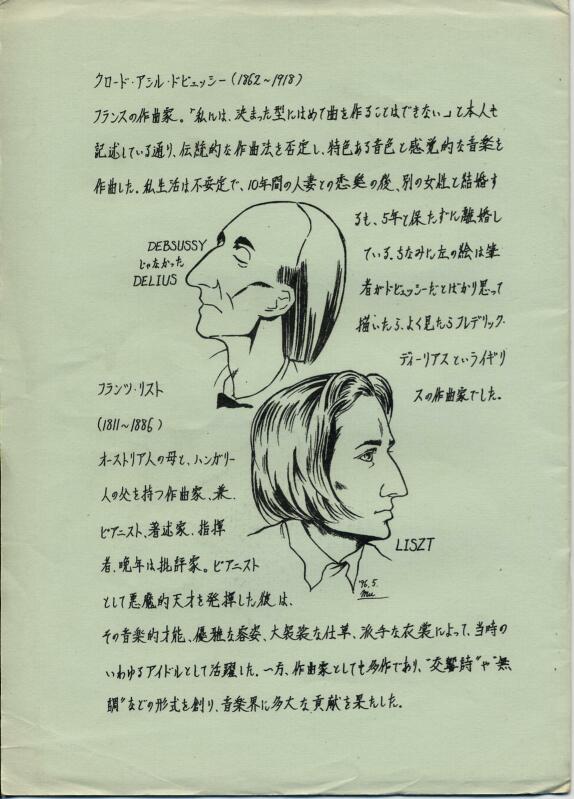 クロード・アシル・ドビュッシー(1862~1918)
フランスの作曲家。“私には、決まった型にはめて曲を作ることはできない。”と本人も
記述している通り、伝統的な作曲法を否定し、特色ある音色と感覚的な音楽を
作曲した。私生活は不安定で、10年間の人妻との恋愛の後、別の女性と結婚す
るも、5年と保たずに離婚し
ている。ちなみに左の絵は筆
者がドビュッシーだとばかり思って
描いたら、よく見たらフレデリック・
ディーリアスというイギリ
スの作曲家でした。
DEBSUSSY
じゃなかった
DELIUS
フランツ・リスト
(1811~1886)
オーストリア人の母と、ハンガリー
人の父を持つ作曲家、兼、
ピアニスト、著述家、指揮
者、晩年は批評家。ピアニスト
として悪魔的天才を発揮した彼は、
その音楽的才能、優雅な容姿、大袈裟な仕草、派手な衣裳によって、当時の
いわゆるアイドルとして活躍した。一方、作曲家としても多作であり、“交響詩”や“無
調”などの形式を創り、音楽界に多大な貢献を果たした。
LISZT
'96.5.